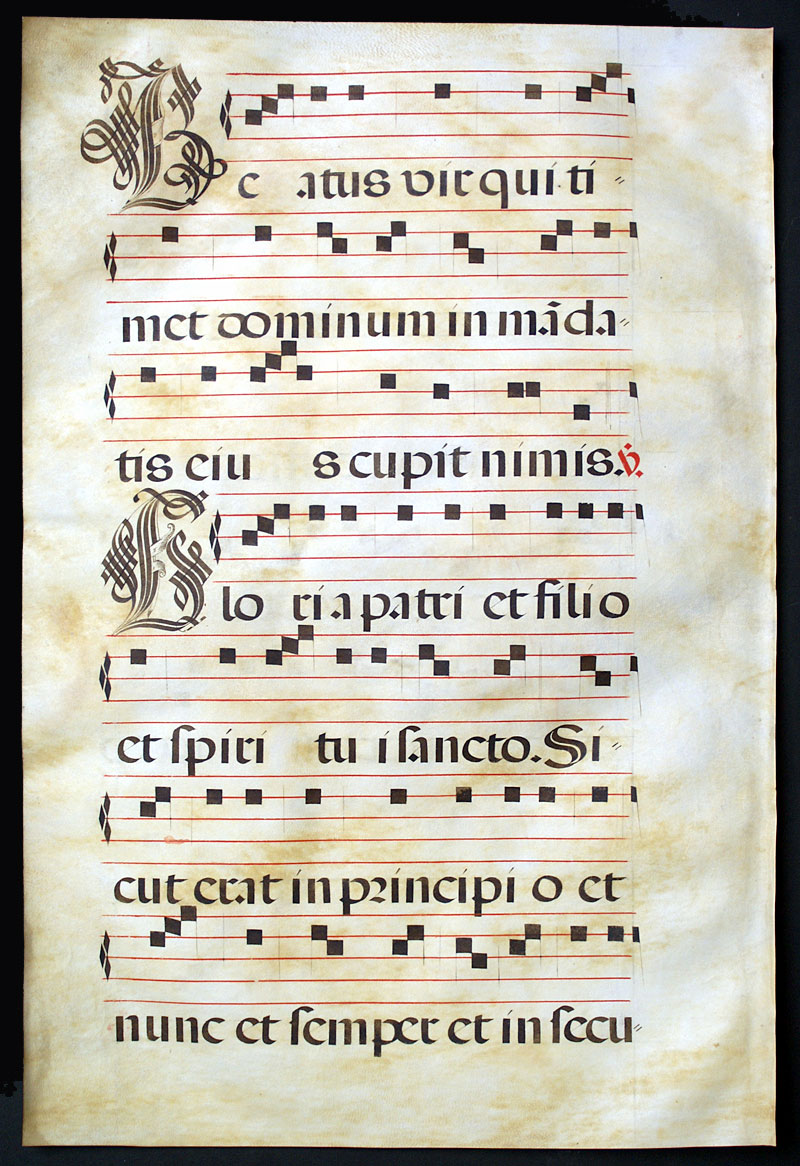 Be atus vir qui ti⸗
met dominum in mãda⸗
tis eiu s cupit nimis. ℣.
Glo ri a patri et filio
et ſpiri tu i ſancto. Si⸗
cut erat in principi o et
nunc et ſemper et in ſecu⸗